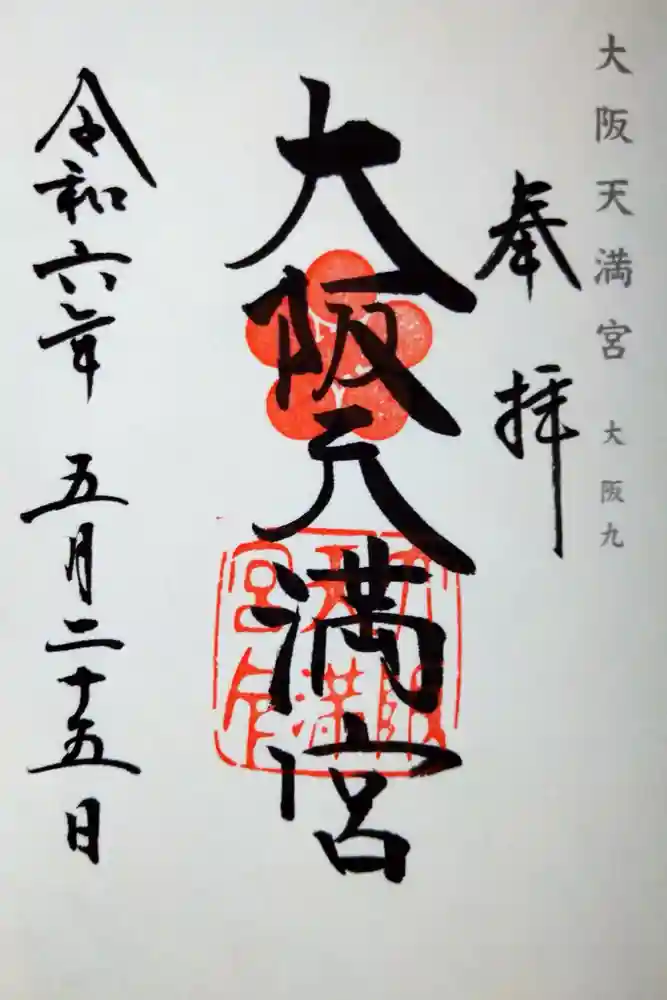 大阪天満宮 大阪九
奉拝
大阪天満宮
大阪
天満
宮印
令和六年 五月二十五日